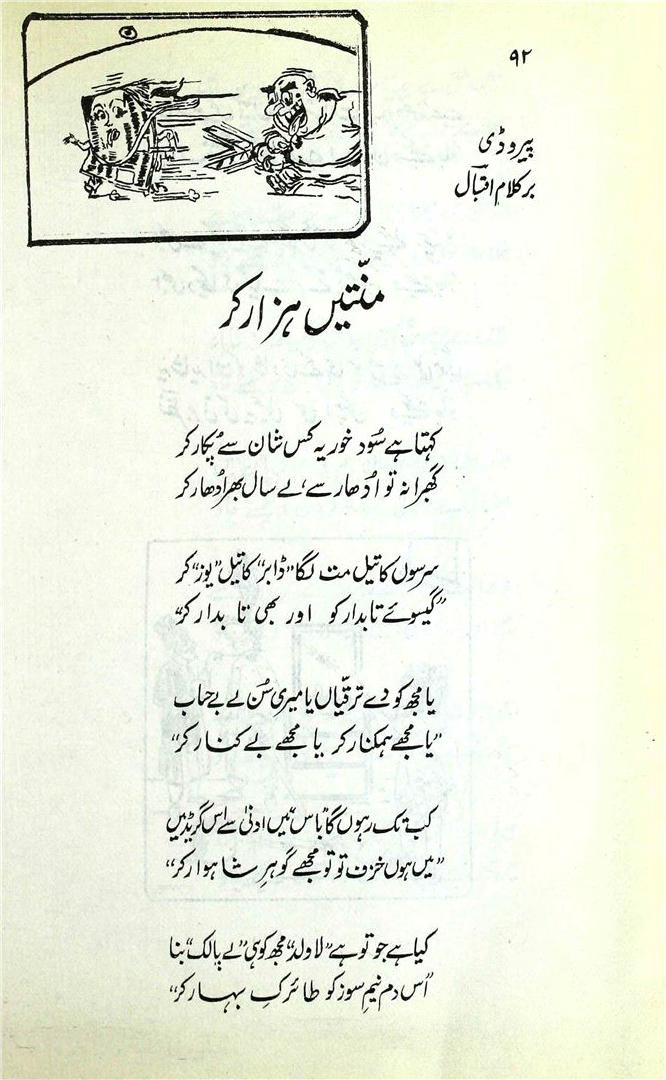 ۹۲
پیروڈی
بر کلامِ اقبال
منّتیں ہزار کر
کہتا ہے سُود خور یہ کس شان سے پُکار کر
گھبرا نہ تو اُدھار سے، لے سال بھر اُدھار کر
سرسوں کا تیل مت لگا "ڈابر" کا تیل "یوز" کر
"گیسوئے تابدار کو اور بھی تابدار کر"
یا مجھ کو دے ترقّیاں یا میری سُن لے بے حجاب
"یا مجھے ہمکنار کر یا مجھے بے کنار کر"
کب تک رہوں گا "باس" میں ادنیٰ سے اس گریڈ میں
"میں ہوں خزف تو تو مجھے گوہرِ شاہوار کر"
کیا ہے جو تو ہے "لاولد" مجھ کو ہی "لے پالک" بنا
"اُس دم نیم سوز کو طائرکِ بہار کر"